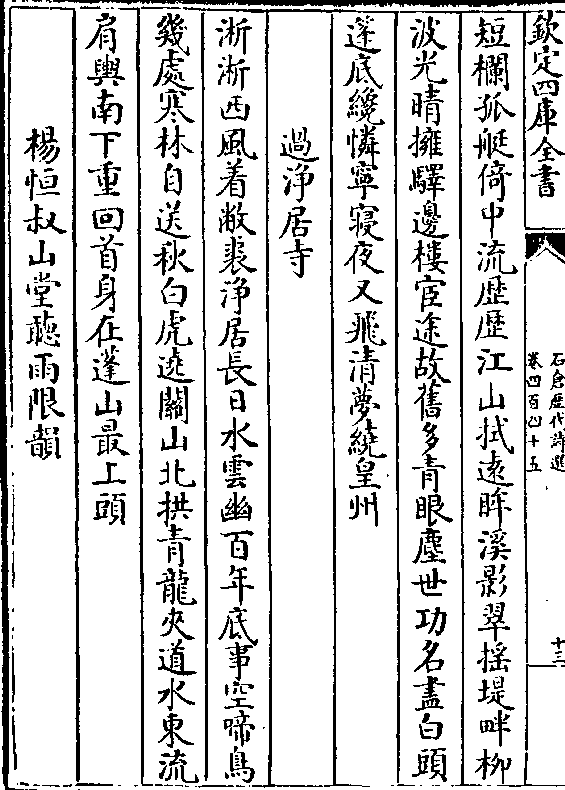 欽定四庫全書
石倉歷代詩選
卷四百四十五
十三
短欄孤艇倚中流歴歴江山拭遠眸溪影翠揺堤畔栁
波光晴擁驛邊樓宦途故舊多青眼塵世功名盡白頭
蓬底纔憐寧寢夜又飛清夢繞皇州
過浄居寺
淅淅西風着敝裘浄居長日水雲幽百年底事空啼鳥
幾處寒林自送秋白虎遶關山北拱青龍夾道水東流
肩輿南下重回首身在蓬山最上頭
楊恒叔山堂聽雨限韻